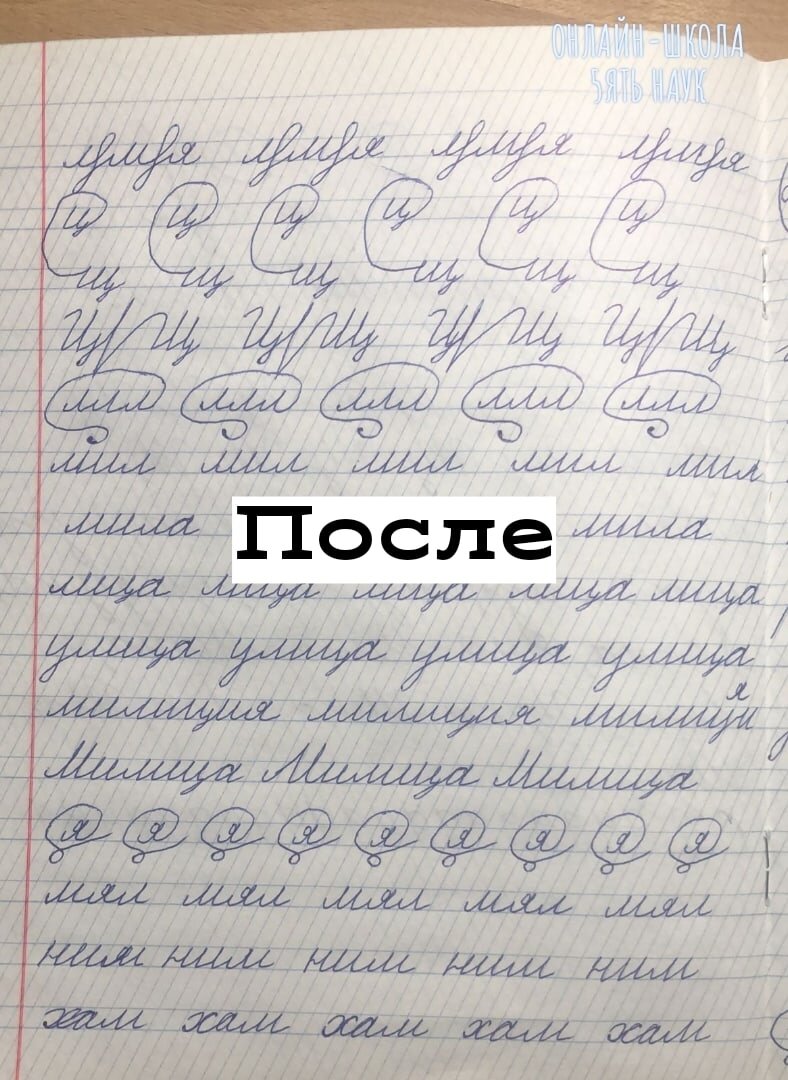 ОНЛАЙН-ШКОЛА
5ЯТЬ НАУК
ц ц ц ц ц ц
щ щ щ щ щ щ
Ц Щ Ц Щ Ц Щ Ц Щ
ллл ллл ллл ллл ллл
мил мил мил мил мил
мила После мила
лица лица лица лица лица
улица улица улица улица
милиция милиция милиция
Милица Милица Милица
я я я я я я я я я
мял мял мял мял мял
ним ним ним ним ним
хам хам хам хам хам